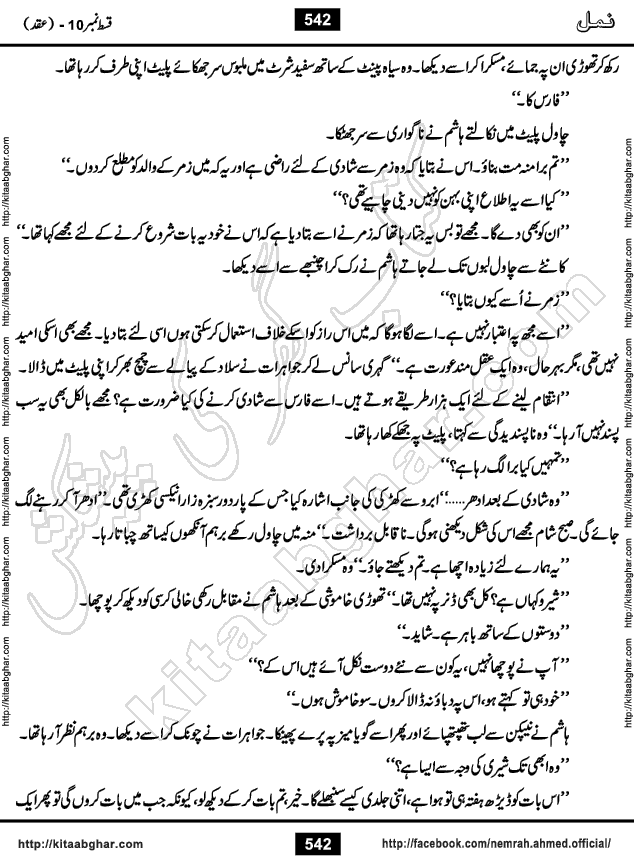 نمل
542
قسط نمبر 10 - (عقد)
رکھ کر تھوڑی ان پہ جمائے، مسکرا کر اسے دیکھا۔ وہ سیاہ پینٹ کے ساتھ سفید شرٹ میں ملبوس سر جھکائے پلیٹ اپنی طرف کر رہا تھا۔
”فارس کا۔“
چاول پلیٹ میں نکالتے ہاشم نے ناگواری سے سر جھٹکا۔
”تم برا منہ مت بناؤ۔ اس نے بتایا کہ وہ زمر سے شادی کے لئے راضی ہے اور یہ کہ میں زمر کے والد کو مطلع کردوں۔“
”کیا اسے یہ اطلاع اپنی بہن کو نہیں دینی چاہیے تھی؟“
”ان کو بھی دے گا۔ مجھے تو بس یہ جتا رہا تھا کہ زمر نے اسے بتا دیا ہے کہ اس نے خود یہ بات شروع کرنے کے لئے مجھے کہا تھا۔“
کانٹے سے چاول لبوں تک لے جاتے ہاشم نے رک کر اچنبھے سے اسے دیکھا۔
”زمر نے اُسے کیوں بتایا؟“
”اسے مجھ پہ اعتبار نہیں ہے۔ اسے لگا ہوگا کہ میں اس راز کو اسکے خلاف استعمال کر سکتی ہوں اسی لئے بتا دیا۔ مجھے بھی اسکی امید
نہیں تھی، مگر بہرحال، وہ ایک عقل مند عورت ہے۔“ گہری سانس لے کر جواہرات نے سلاد کے پیالے سے چمچ بھر کر اپنی پلیٹ میں ڈالا۔
”انتقام لینے کے لئے ایک ہزار طریقے ہوتے ہیں۔ اسے فارس سے شادی کرنے کی کیا ضرورت ہے؟ مجھے بالکل بھی یہ سب
پسند نہیں آرہا۔“ وہ ناپسندیدگی سے کہتا، پلیٹ پہ جھکے کھا رہا تھا۔
”تمہیں کیا برا لگ رہا ہے؟“
”وہ شادی کے بعد ادھر.....“ ابرو سے کھڑکی کی جانب اشارہ کیا جس کے پار دور سبزہ زار انیکسی کھڑی تھی۔ ”ادھر آکر رہنے لگ
جائے گی۔ صبح شام مجھے اس کی شکل دیکھنی ہوگی۔ ناقابل برداشت۔“ منہ میں چاول رکھے برہم آنکھوں کیساتھ چباتا رہا۔
”یہ ہمارے لئے زیادہ اچھا ہے۔ تم دیکھتے جاؤ۔“ وہ مسکرا دی۔
”شیرو کہاں ہے؟ کل بھی ڈنر پہ نہیں تھا۔“ تھوڑی خاموشی کے بعد ہاشم نے مقابل رکھی خالی کرسی کو دیکھ کر پوچھا۔
”دوستوں کے ساتھ باہر ہے۔ شاید۔“
”آپ نے پوچھا نہیں، یہ کون سے نئے دوست نکل آئے ہیں اس کے؟“
”خود ہی تو کہتے ہو، اس پہ دباؤ نہ ڈالا کروں۔ سو خاموش ہوں۔“
ہاشم نے نیپکن سے لب تھپتھپائے اور پھر اسے گویا میز پہ پرے پھینکا۔ جواہرات نے چونک کر اسے دیکھا۔ وہ برہم نظر آرہا تھا۔
”وہ ابھی تک شیری کی وجہ سے ایسا ہے؟“
”اس بات کو ڈیڑھ ہفتہ ہی تو ہوا ہے، اتنی جلدی کیسے سنبھلے گا۔ خیر، تم بات کر کے دیکھ لو، کیونکہ جب میں بات کروں گی تو پھر ایک
http://kitaabghar.com
http://kitaabghar.com
http://kitaabghar.com
http://kitaabghar.com
http://kitaabghar.com
http://kitaabghar.com
http://kitaabghar.com
http://kitaabghar.com
http://kitaabghar.com
http://kitaabghar.com
http://kitaabghar.com
http://kitaabghar.com
کتاب گھر کی پیشکش
kitaabghar.com
http://kitaabghar.com
542
http://facebook.com/nemrah.ahmed.official/